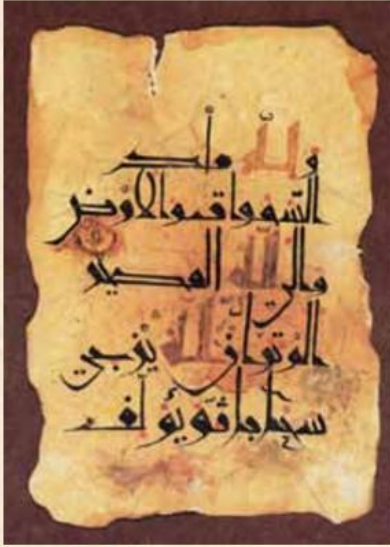 ولله ملك
السموات والأرض
وإلى الله المصير
ألم تر أن الله يزجي
سحابا ثم يؤلف